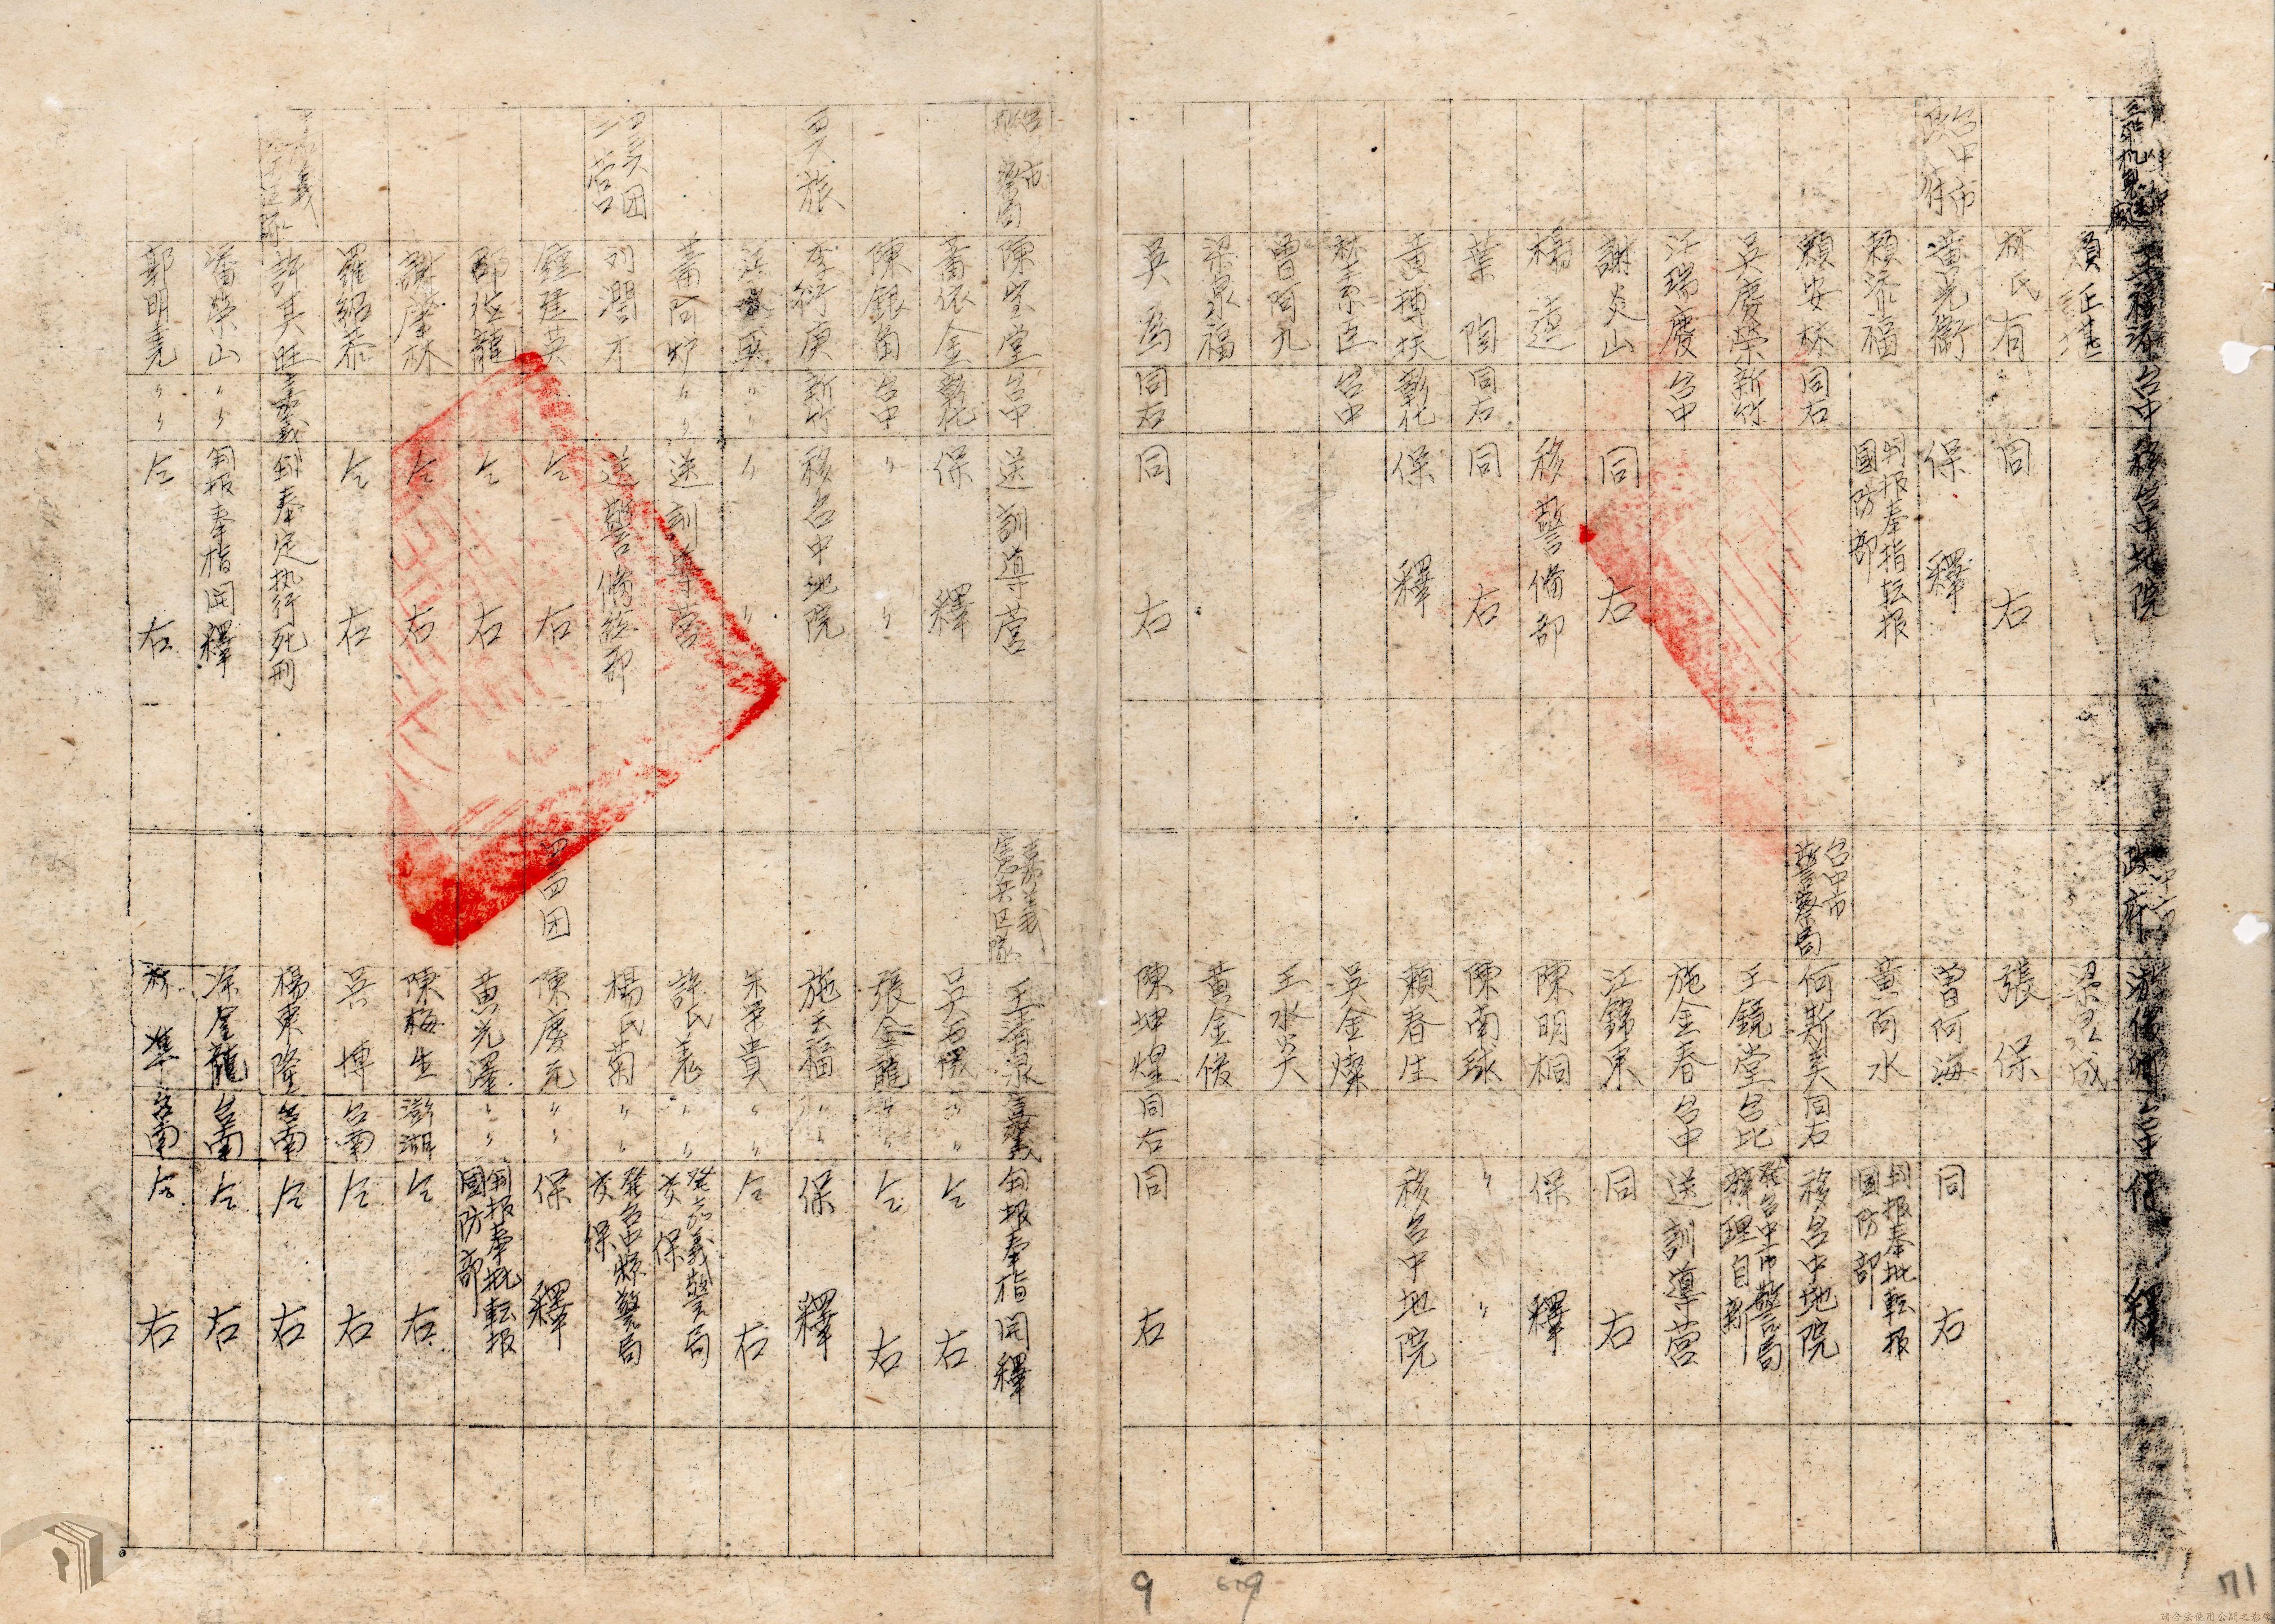 台中市 政府
台中 移台中地院
顏証堪
林氏有 〃 同右
黃光衞 保釋
賴添福 判报奉指転报國防部
賴安林 同右
吳慶榮 新竹
江瑞慶 台中
謝炎山 同右
楊逵 移警備部
葉陶 同右 同右
黃博扶 彰化 保釋
林素臣 台中
曾阿九
梁泉福
吳為 同右 同右
政府 台中 保釋
張保
曾阿海 同右
黃阿水 判报奉批転报國防部
台中市警察局 何斯美 同右 移台中地院
王鏡堂 台北 發台中市警局辦理自新
施金春 台中 送訓導营
江錦東 同右
陳明桐 保釋
陳南球 〃 〃
賴春生 移台中地院
吳金燦
王水炎
黃金俊
陳坤煌 同右 同右
警局 陳宝堂 台中 送訓導营
蕭依金 彰化 保釋
陳銀角 台中 〃 〃
旅 李衍庚 新竹 移台中地院
〃 〃 〃 〃
蕭阿 〃 〃 送訓導营
团二营 刘潤才 送警備総部
鍾建英 仝右
龍 仝右
謝 林 仝右
羅紹泰 仝右
嘉義 許其旺 嘉義 判奉定执行死刑
潘荣山 〃 〃 判报奉指開釋
郭明堯 〃 〃 仝右
嘉義憲兵区隊 王清泉 嘉義 判报奉指開釋
〃 〃 仝右
張金龍 〃 〃 仝右
施云福 〃 〃 保釋
朱荣貴 〃 〃 仝右
許氏 〃 〃 發嘉義警局交保
楊氏菊 〃 〃 發台中縣警局交保
四团 陳慶元 〃 〃 保釋
黃光澤 〃 〃 判报奉批転报國防部
陳梅生 澎湖 仝右
吳博 台南 仝右
楊東隆 台南 仝右
涂星龍 台南 仝右
林準 台南 仝右
9
609
71
請合法使用公開之影像